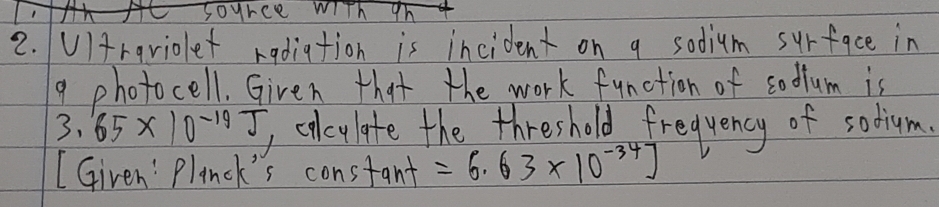 1. An AC source with an
2. Ultraviolet radiation is incident on a sodium surface in
a photocell. Given that the work function of sodium is
3.65 × 10⁻¹⁹ J, calculate the threshold frequency of sodium.
[Given: Planck's constant = 6.63 × 10⁻³⁴]